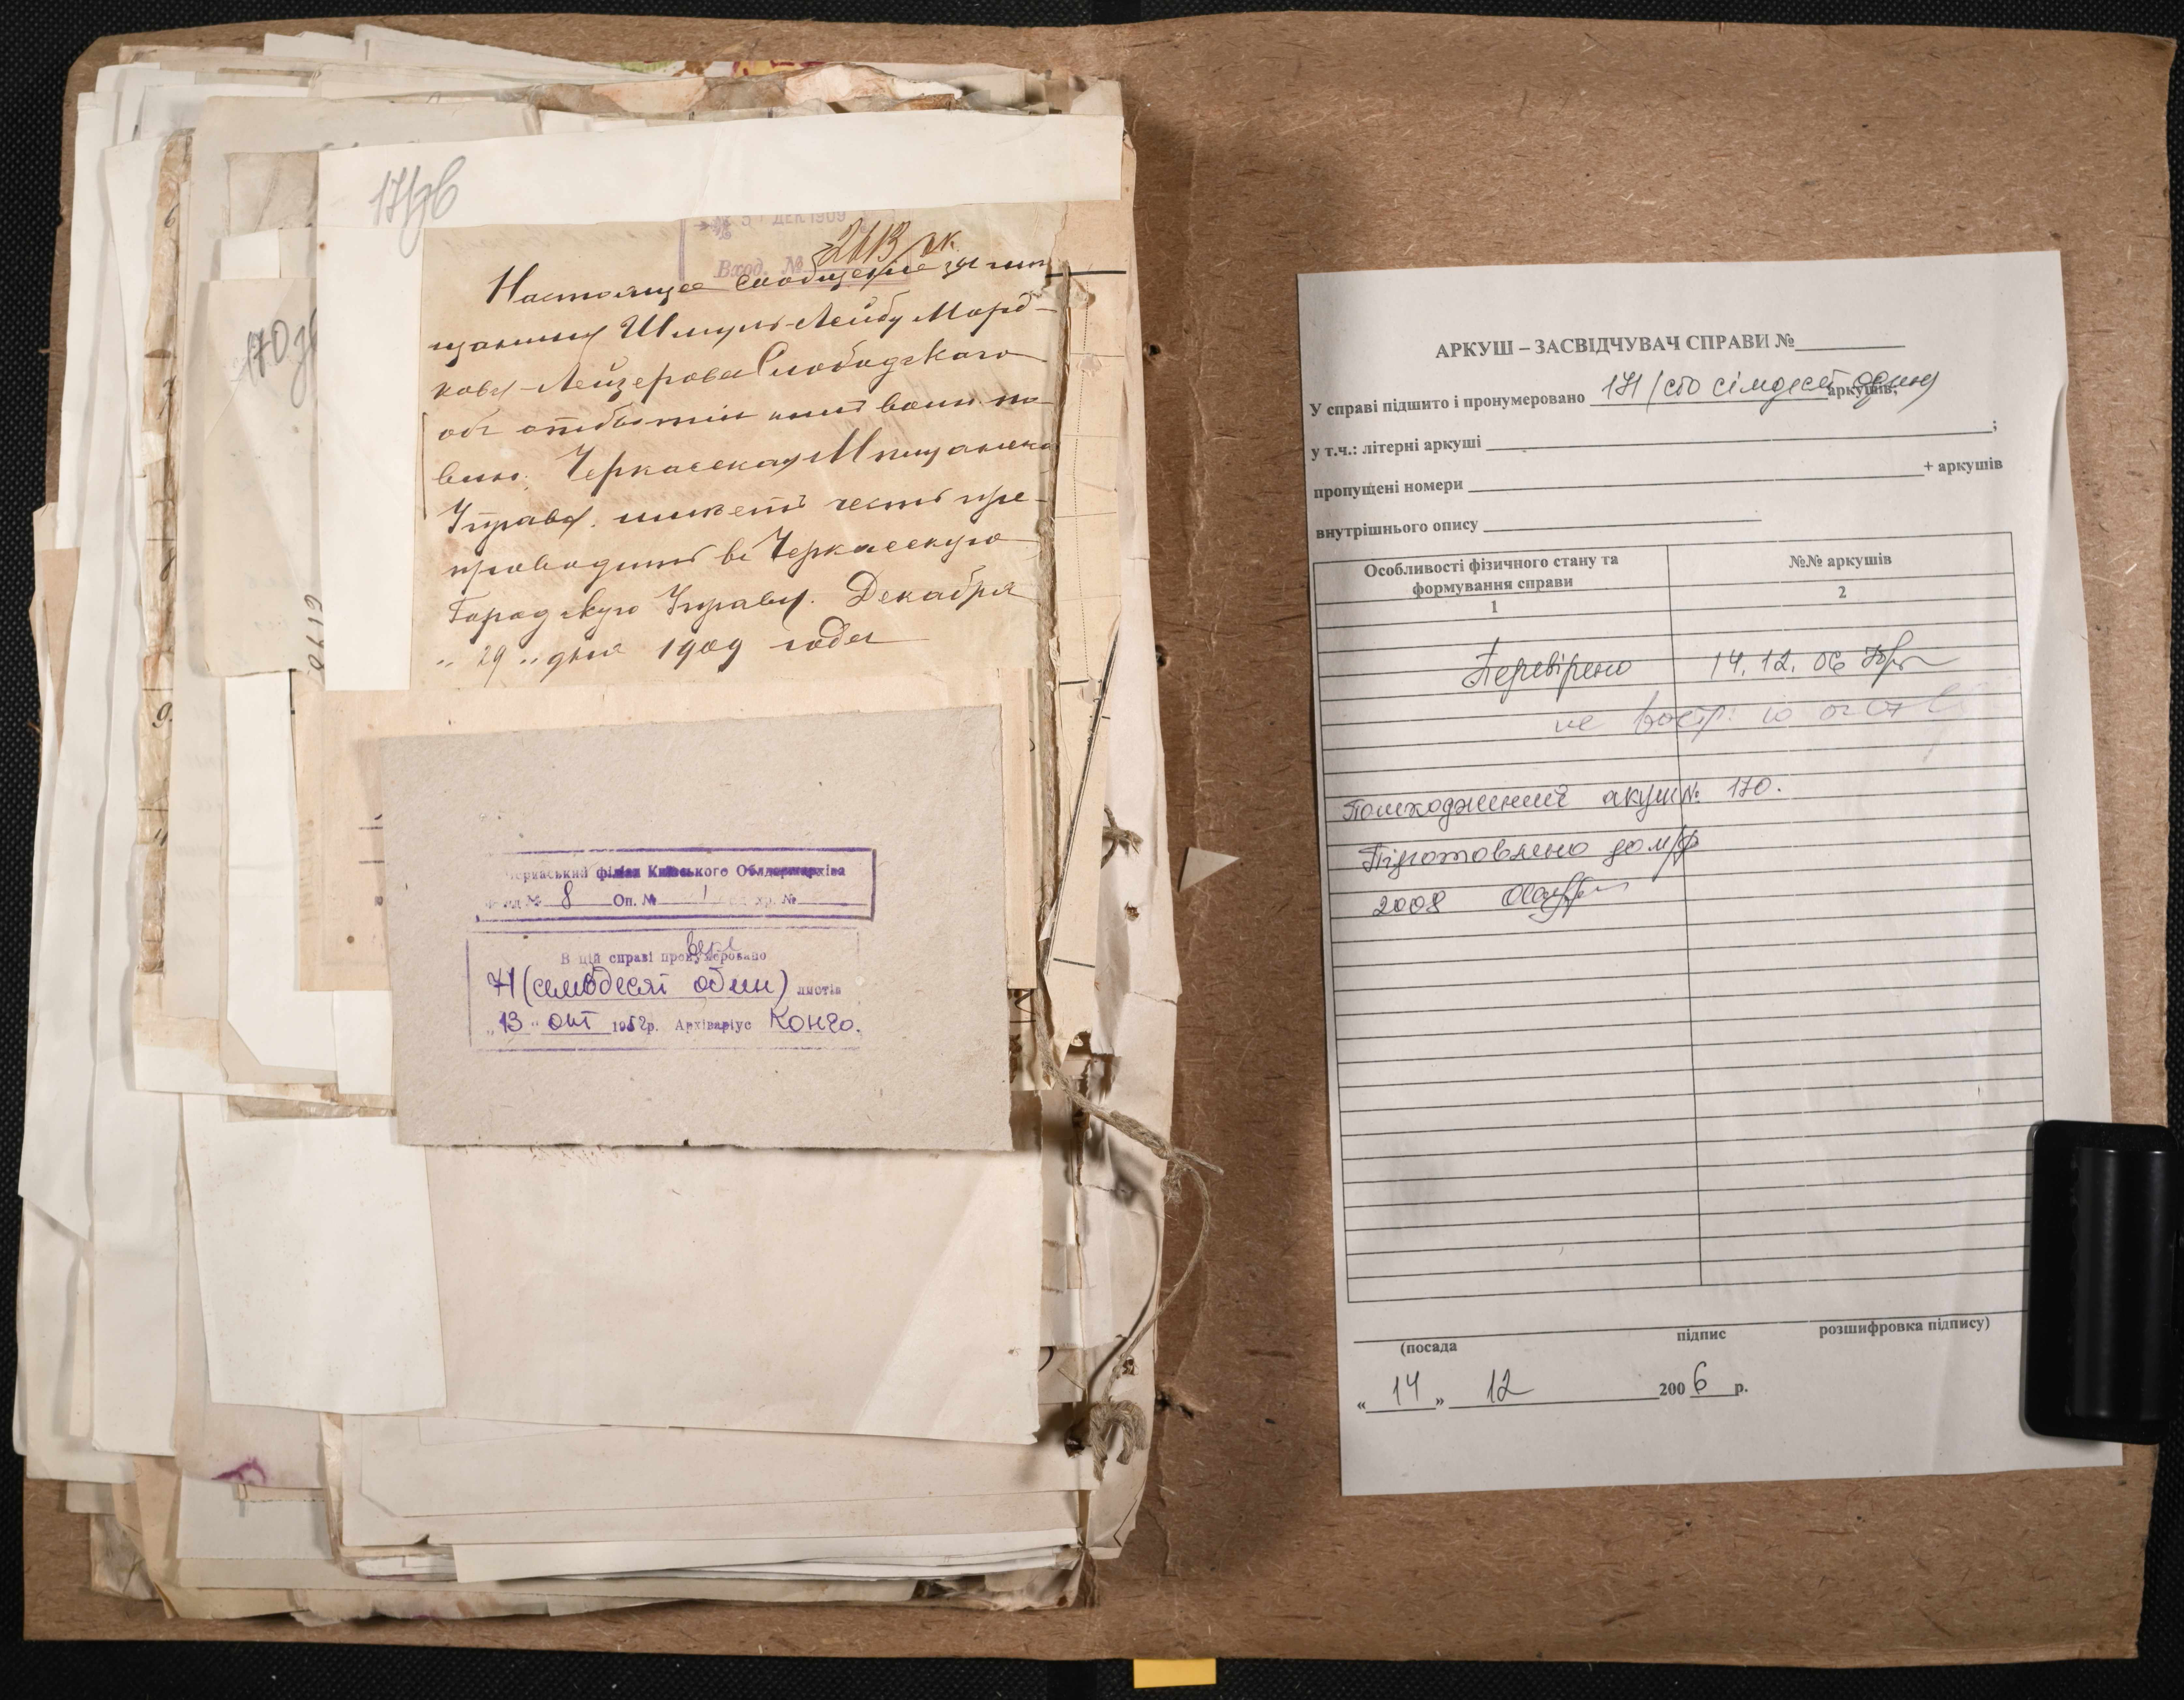 171зв
31 ДЕК 1909
Вход. № 2613
Настоящее сообщение за им
щанина Шмуль-Лейбу Морд-
кова-Лейзерова Слободского
объ отбытіи имъ воин. по-
вин. Черкасская Мѣщанска
Управа. имѣетъ честь пре-
проводить въ Черкасскую
Городскую Управу. Декабря
„ 29 „ дня 1909 года
170зв
6
7
8
9.
Черкаський філіал Київського Облдержархіва
Фонд № 8 Оп. № 1 хр. №
В цій справі пронумеровано
71 (семьдесят один) листів
„ 13 „ окт 1952р. Архіваріус
АРКУШ – ЗАСВІДЧУВАЧ СПРАВИ №
У справі підшито і пронумеровано 171 (сто сімдесят один) аркушів;
у т.ч.: літерні аркуші ;
пропущені номери + аркушів
внутрішнього опису
Особливості фізичного стану та формування справи
№№ аркушів
1
2
Перевірено 14.12.06
Пошкоджений акуш № 170.
Підготовлено до м/ф
2008
(посада
підпис
розшифровка підпису)
« 14 » 12 2006 р.